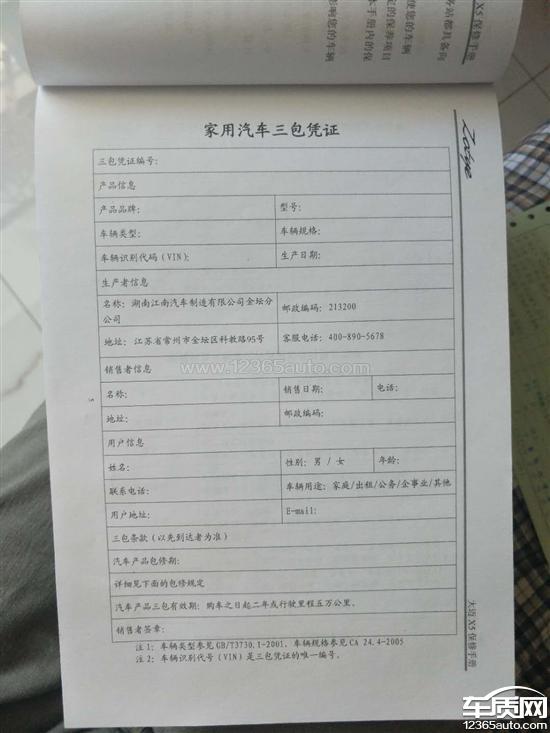 X5保修手册
务站都具备向
使您的车辆
定的保养项目
本手册内的保
影响您的车辆
Zotye
家用汽车三包凭证
三包凭证编号:
产品信息
产品品牌: 型号:
车辆类型: 车辆规格:
车辆识别代码(VIN): 生产日期:
生产者信息
名称: 湖南江南汽车制造有限公司金坛分 邮政编码: 213200
公司
地址: 江苏省常州市金坛区科教路95号 客服电话: 400-890-5678
销售者信息
www.12365auto.com
名称: 销售日期: 电话:
地址: 邮政编码:
用户信息
姓名: 性别: 男 / 女 年龄:
联系电话: 车辆用途: 家庭/出租/公务/企事业/其他
用户地址: E-mail:
三包条款(以先到达者为准)
汽车产品包修期:
详细见下面的包修规定
汽车产品三包有效期: 购车之日起二年或行驶里程五万公里。
销售者签章:
注1: 车辆类型参见GB/T3730.1-2001, 车辆规格参见CA 24.4-2005
注2: 车辆识别代号(VIN)是三包凭证的唯一编号。
5
大迈X5保修手册
车质网
12365auto.com